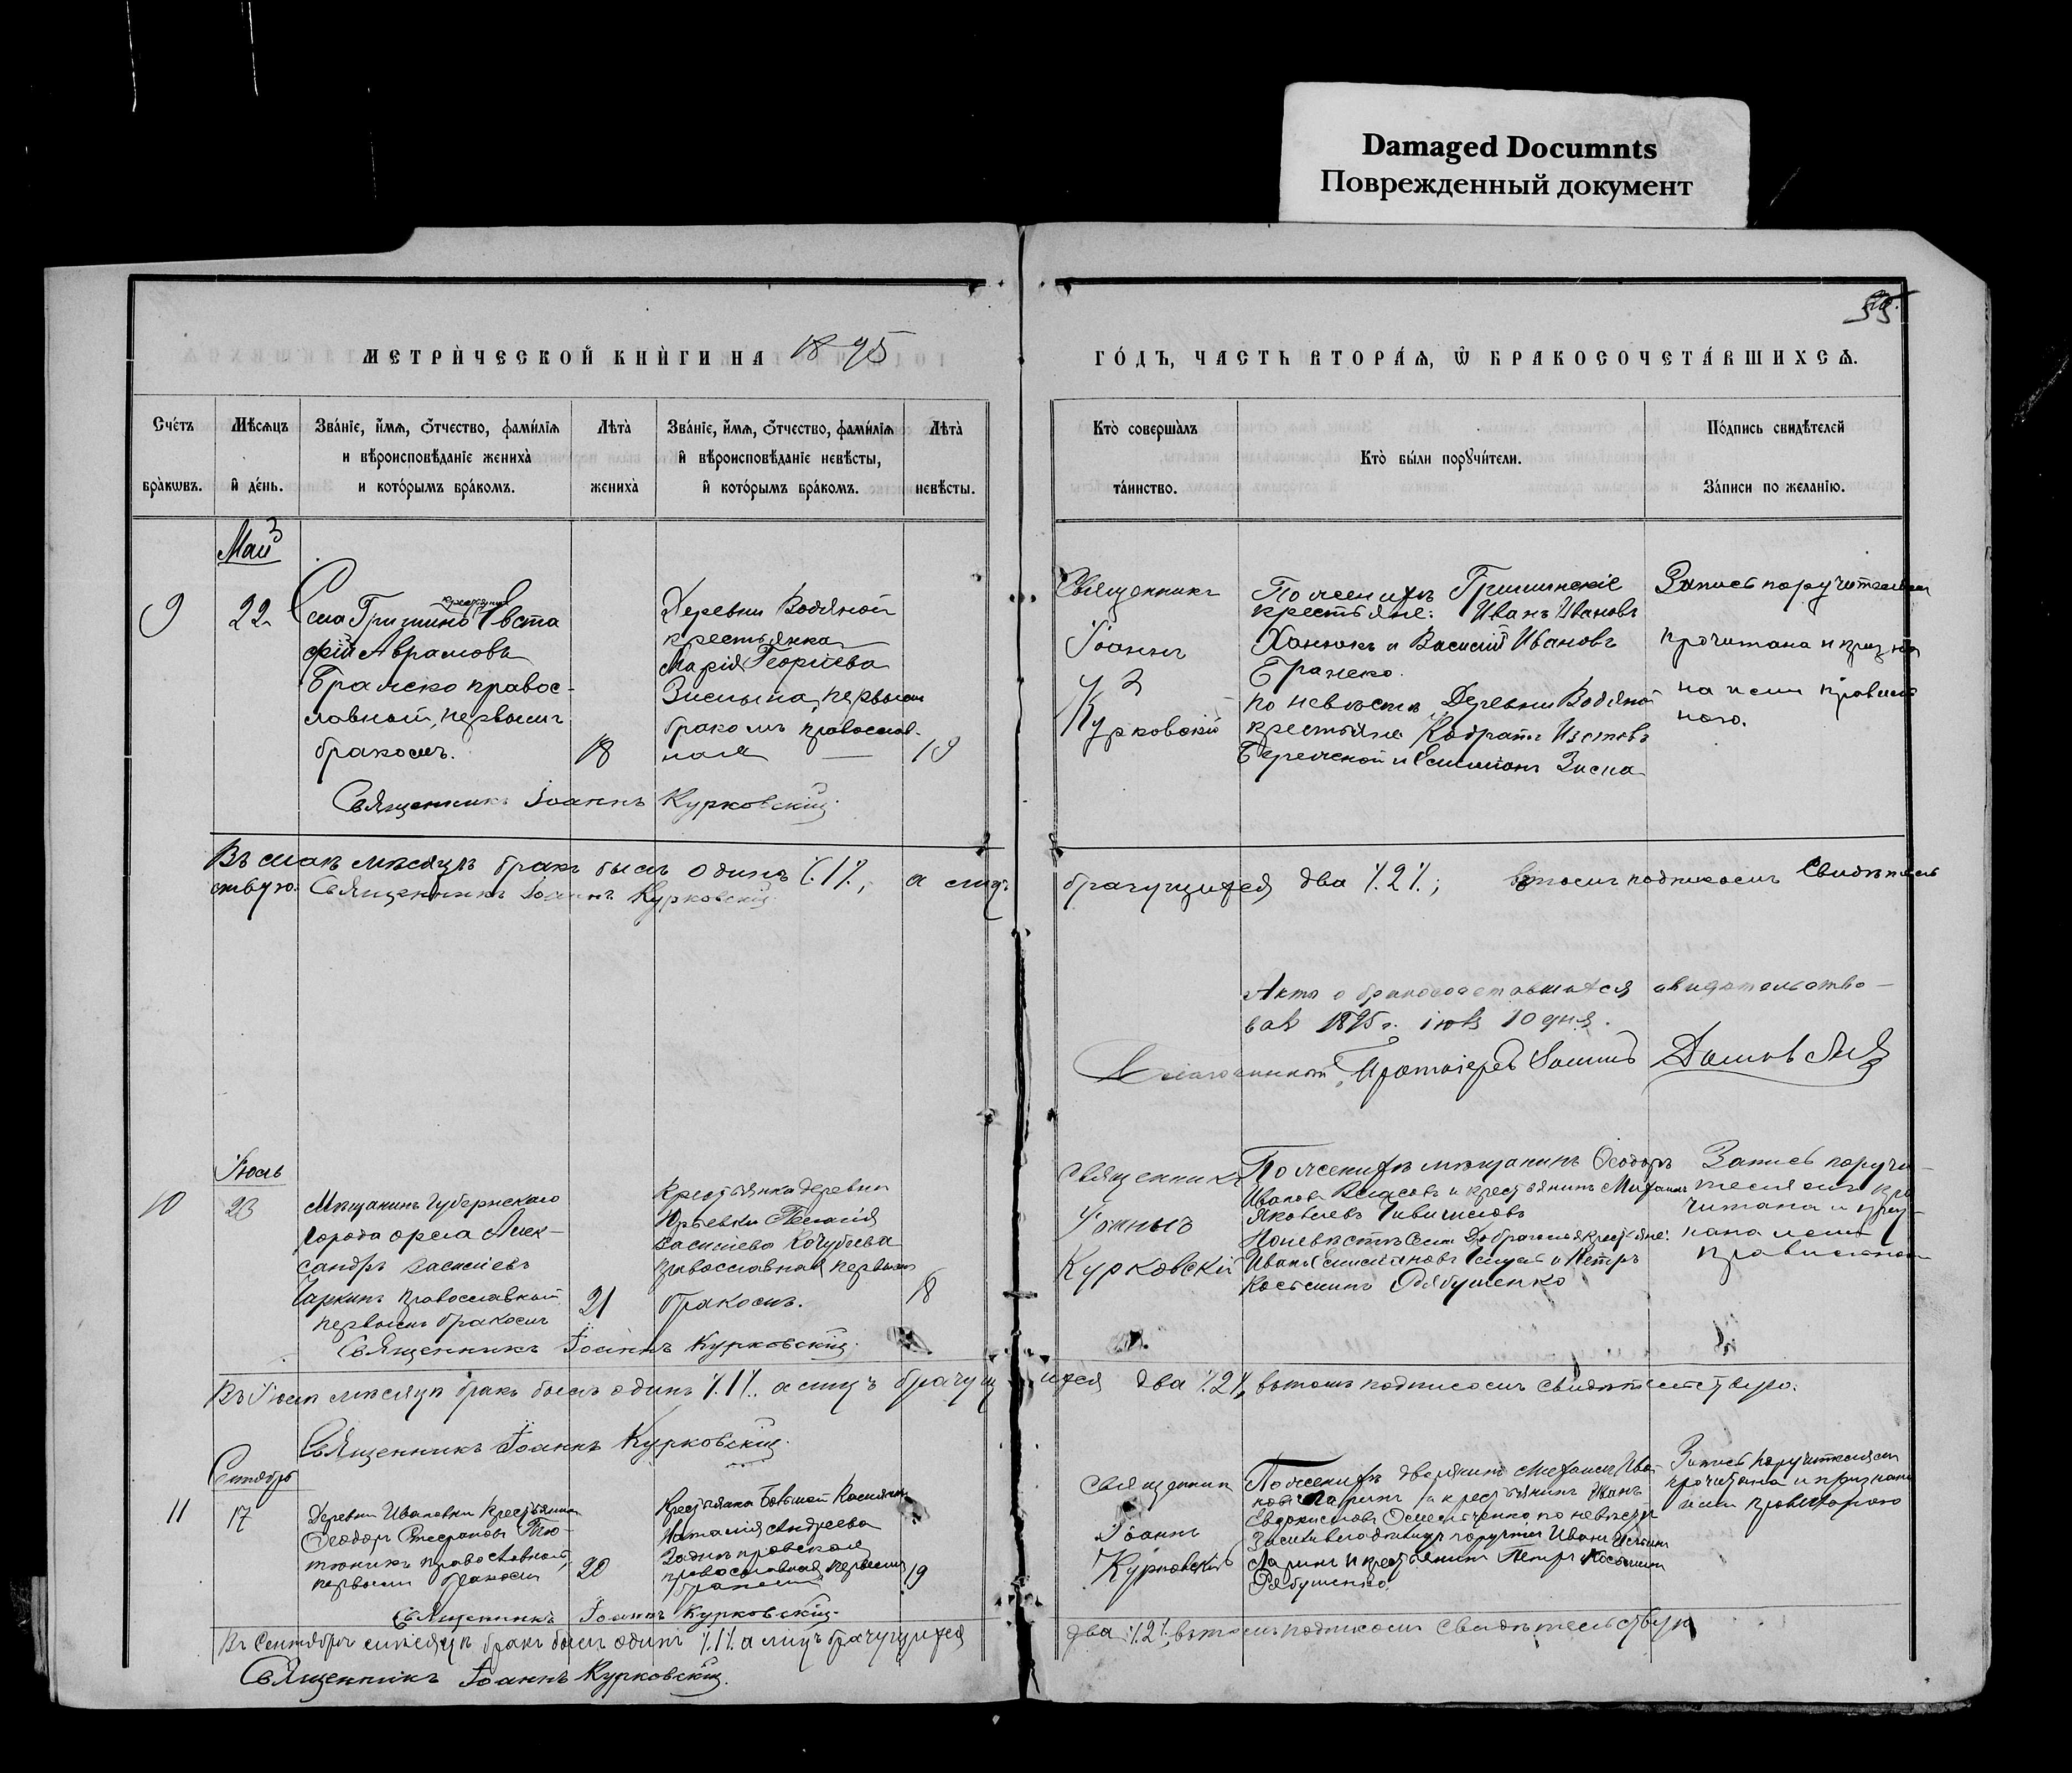 Damaged Documnts
Поврежденный документ
МЕТРИ́ЧЕСКОЙ КНИ́ГИ НА 1895
ГО́ДЪ, ЧАСТЬ ВТОРА́Я, Ѿ БРАКОСОЧЕТА́ВШИХСѦ.
Сче́тъ бра̀кωвъ.
Мѣ́сѧцъ и҆ де́нь.
Зва́нїе, и҆́мѧ, ѻ҆́тчество, фамѝлїѧ
и вѣроисповѣ́данїе жениха̀
и кото́рымъ бра́комъ.
Лѣта̀ жениха̀
Зва́нїе, и҆́мѧ, ѻ҆́тчество, фамѝлїѧ
и҆ вѣроисповѣ́данїе невѣ́сты,
и҆ кото́рымъ бра́комъ.
Лѣта̀ невѣ́сты.
Кто̀ соверша̀лъ та́инство.
Кто̀ бы́ли порꙋчи́тели.
По́дпись свидѣ́телей
За́писи по жела́нїю.
Май
9
22
Села Гришино крестьянинъ Евста
фій Авраамовъ
Бражко правос-
лавный, первымъ
бракомъ.
18
Деревни Водяной
крестьянка
Марія Георгіева
первымъ
бракомъ православ-
ная
19
Священникъ
Іоаннъ
Курковскій
По женихѣ Гришинскіе
крестьяне: Иванъ Ивановъ
Ханюкъ и Василій Ивановъ
Бражко.
по невѣстѣ Деревни Водяной
крестьяне
Запись поручителямъ
прочитана и призна
на ими правиль
ною.
Священникъ Іоаннъ Курковскій.
Въ маѣ мѣсяцѣ бракъ былъ одинъ %1%, а лицъ брачущихся два %2%; въ томъ подписомъ свидѣтель
ствую. Священникъ Іоаннъ Курковскій
Акты о бракосочетавшихся свидѣтельство-
валъ 1895 г. 10 дня.
Благочинный, Протоіерей
Іюль
10
23
Мѣщанинъ Губернскаго
города Орла Алек-
сандръ Васильевъ
православный
первымъ бракомъ
21
Крестьянка деревни
Юрьевки Пелагія
Васильева Кочубеева
православная первымъ
бракомъ.
18
Священникъ
Іоаннъ
Курковскій
По женихѣ мѣщанинъ Ѳеодоръ
Ивановъ Власовъ и крестьянинъ Михаилъ
Яковлевъ
По невѣстѣ села крестьяне:
Иванъ и Петръ
Рябушенко
Запись поручи-
телямъ про
читана и приз-
нана ими
правильною
Священникъ Іоаннъ Курковскій.
Въ Іюлѣ мѣсяцѣ бракъ былъ одинъ %1%. а лицъ брачущихся два %2%, въ томъ подписомъ свидѣтельствую.
Священникъ Іоаннъ Курковскій.
Сентябрь
11
17
Деревни Ивановки крестьянинъ
Ѳеодоръ Стефановъ Тю-
тюникъ православный,
первымъ бракомъ
20
Крестьянка
Наталія Андреева
Заднепровская
православная первымъ
бракомъ
19
Священникъ
Іоаннъ
Курковскій
По женихѣ дворянинъ
Ларинъ и крестьянинъ Иванъ
по невѣстѣ
Иванъ
Ларинъ и крестьянинъ Петръ
Рябушенко.
Запись поручителямъ
прочитана и признана
ими правильною
Священникъ Іоаннъ Курковскій.
Въ Сентябрѣ мѣсяцѣ бракъ былъ одинъ %1%. а лицъ брачущихся два %2%, въ томъ подписомъ свидѣтельствую
Священникъ Іоаннъ Курковскій.